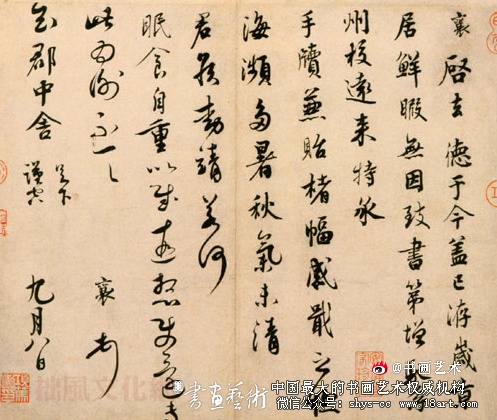 襄啓去德于今蓋已洊歲
居鮮暇無因致書第增
州校遠來特承
手牘兼貽楮幅感戢之
海瀕多暑秋氣未清
君侯動靜若何
眠食自重以慰遠想
此為謝不一一
襄頓首
知郡中舍足下
謹空
九月八日
@书画艺术
書畫藝術
中国最大的书画艺术权威机构
微信公众号: shys-cc www.18art.com